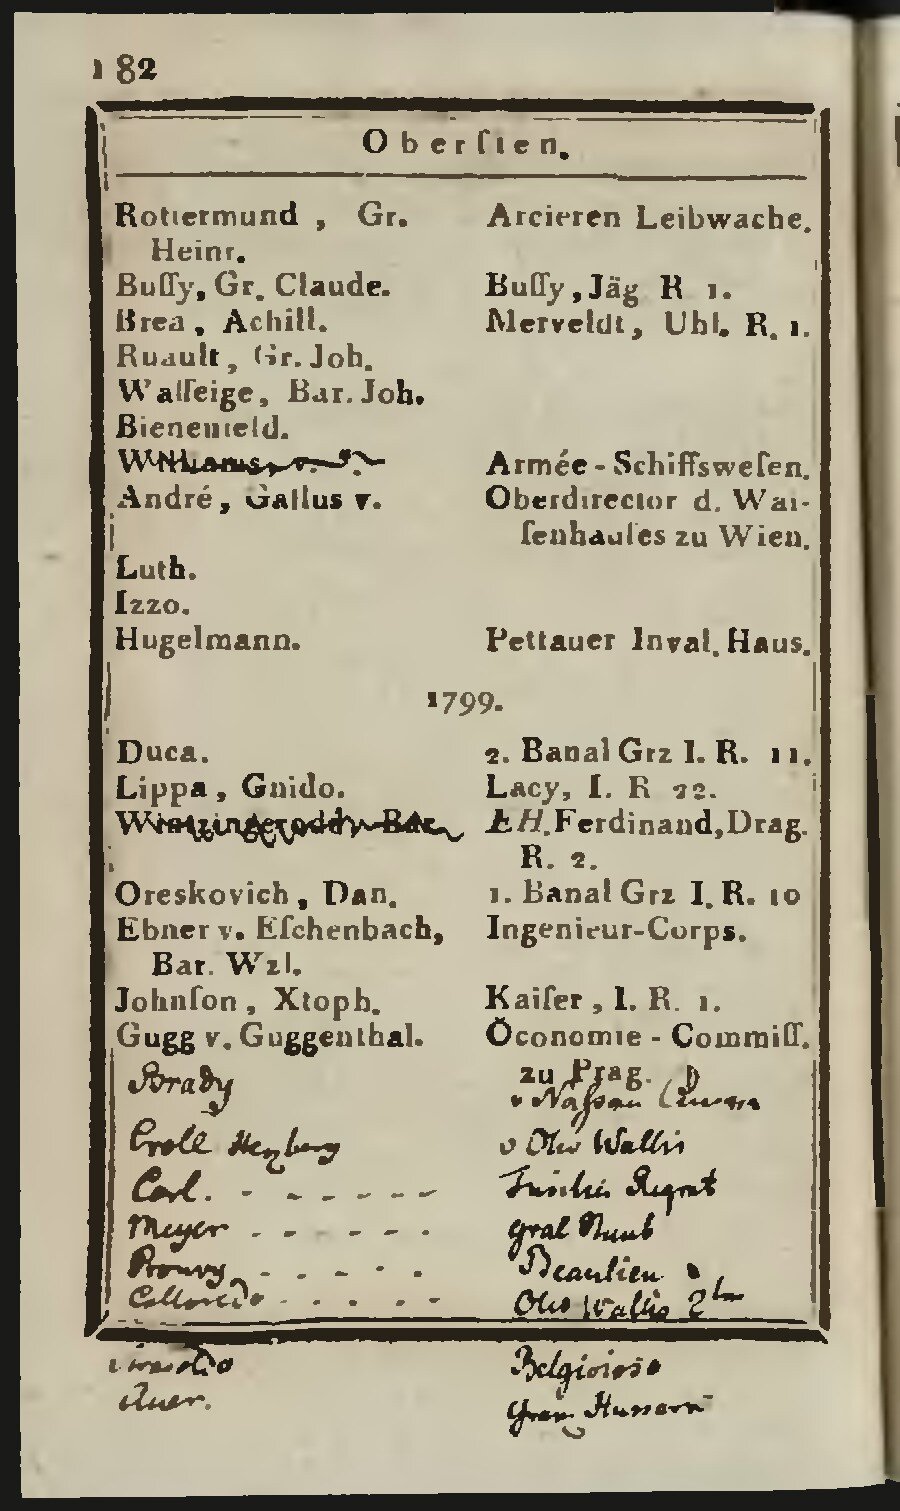 182
Oberſten.
Rottermund, Gr. Arcieren Leibwache.
Heinr.
Buſſy, Gr. Claude. Buſſy, Jäg R 1.
Brea, Achill. Merveldt, Uhl. R. 1.
Ruault, Gr. Joh.
Walſeige, Bar. Joh.
Bienenfeld.
Williams, v. Armée-Schiffsweſen.
André, Gallus v. Oberdirector d. Wai-
ſenhauſes zu Wien.
Luth.
Izzo.
Hugelmann. Pettauer Inval. Haus.
1799.
Duca. 2. Banal Grz I. R. 11.
Lippa, Guido. Lacy, I. R 22.
Wintzingerode, Bar. EH. Ferdinand, Drag.
R. 2.
Oreskovich, Dan. 1. Banal Grz I. R. 10
Ebner v. Eſchenbach, Ingenieur-Corps.
Bar. Wzl.
Johnſon, Xtoph. Kaiſer, I. R. 1.
Gugg v. Guggenthal. Öconomie-Commiſſ.
zu Prag.
Brady v Naſsau
Croll Olw Wallis
Carl. - - - - - -
Meyer - - - - - - gral
- - - - - Beaulieu
Colloredo - - - - - Olw Wallis 2
Belgioioso
Auer.